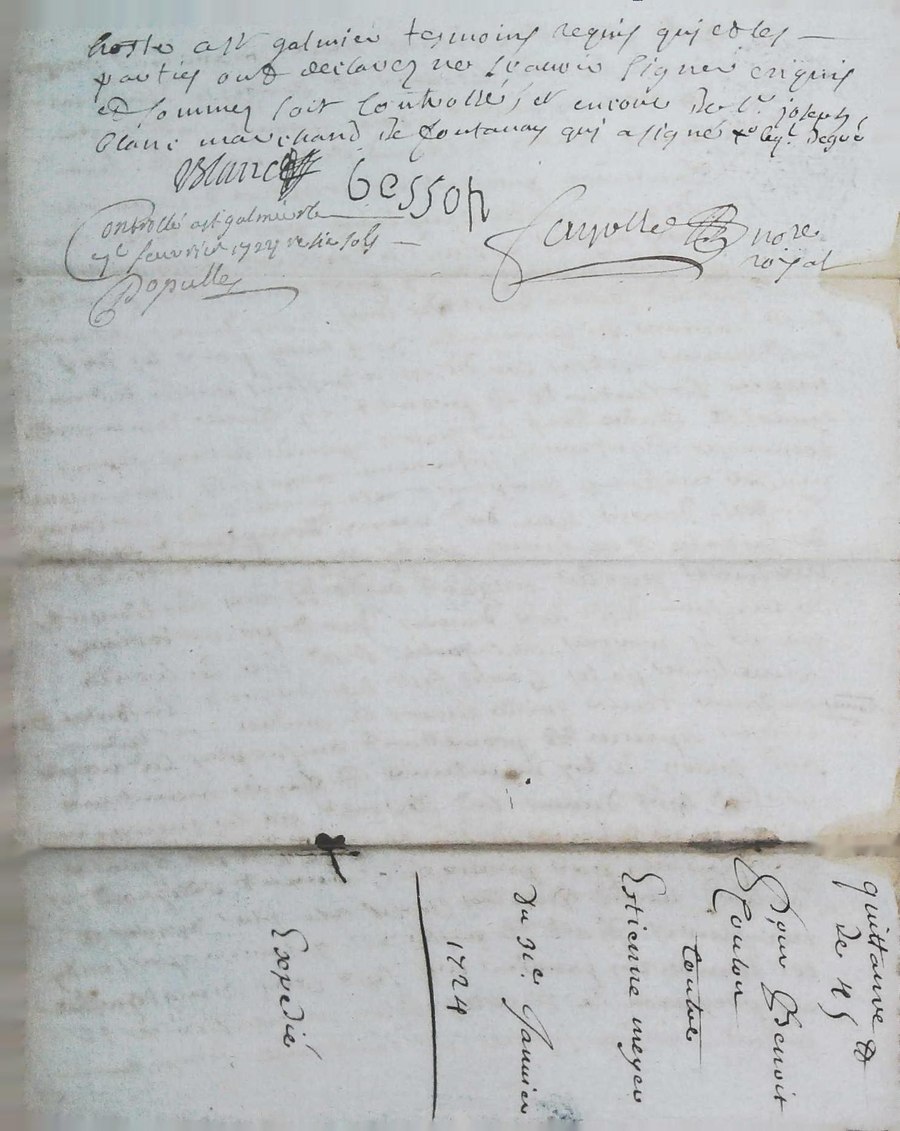 hoste a st galmier tesmoins requis qui et les
parties ont declarez ne scauoir signer enquis
et sommez soit controllé, et encore de sr. joseph
blanc marchand de fontanay qui a signé
Blanc
besson
nore
royal
Controllé a st galmier le
fevrier 1724 sols
Populle
quittance
de 45
Pour Benoit
Coulon
Contre
Estienne meyer
du 31e Janvier
1724
Expedié